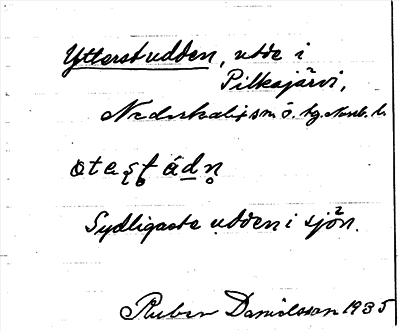 Ytterstudden, udde i
Pilkajärvi,
Nederkalix sn ö. hg. Norrb. l.
Sydligaste udden i sjön.
Ruben Danielsson 1935